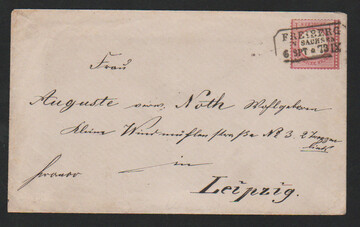 FREIBERG
SACHSEN
6 SPT 73 IX
Frau
Auguste verw. Noth Wohlgeboren
Kleine Windmühlenstraße No 3. 2 Treppen
links
in
franco
Leipzig.